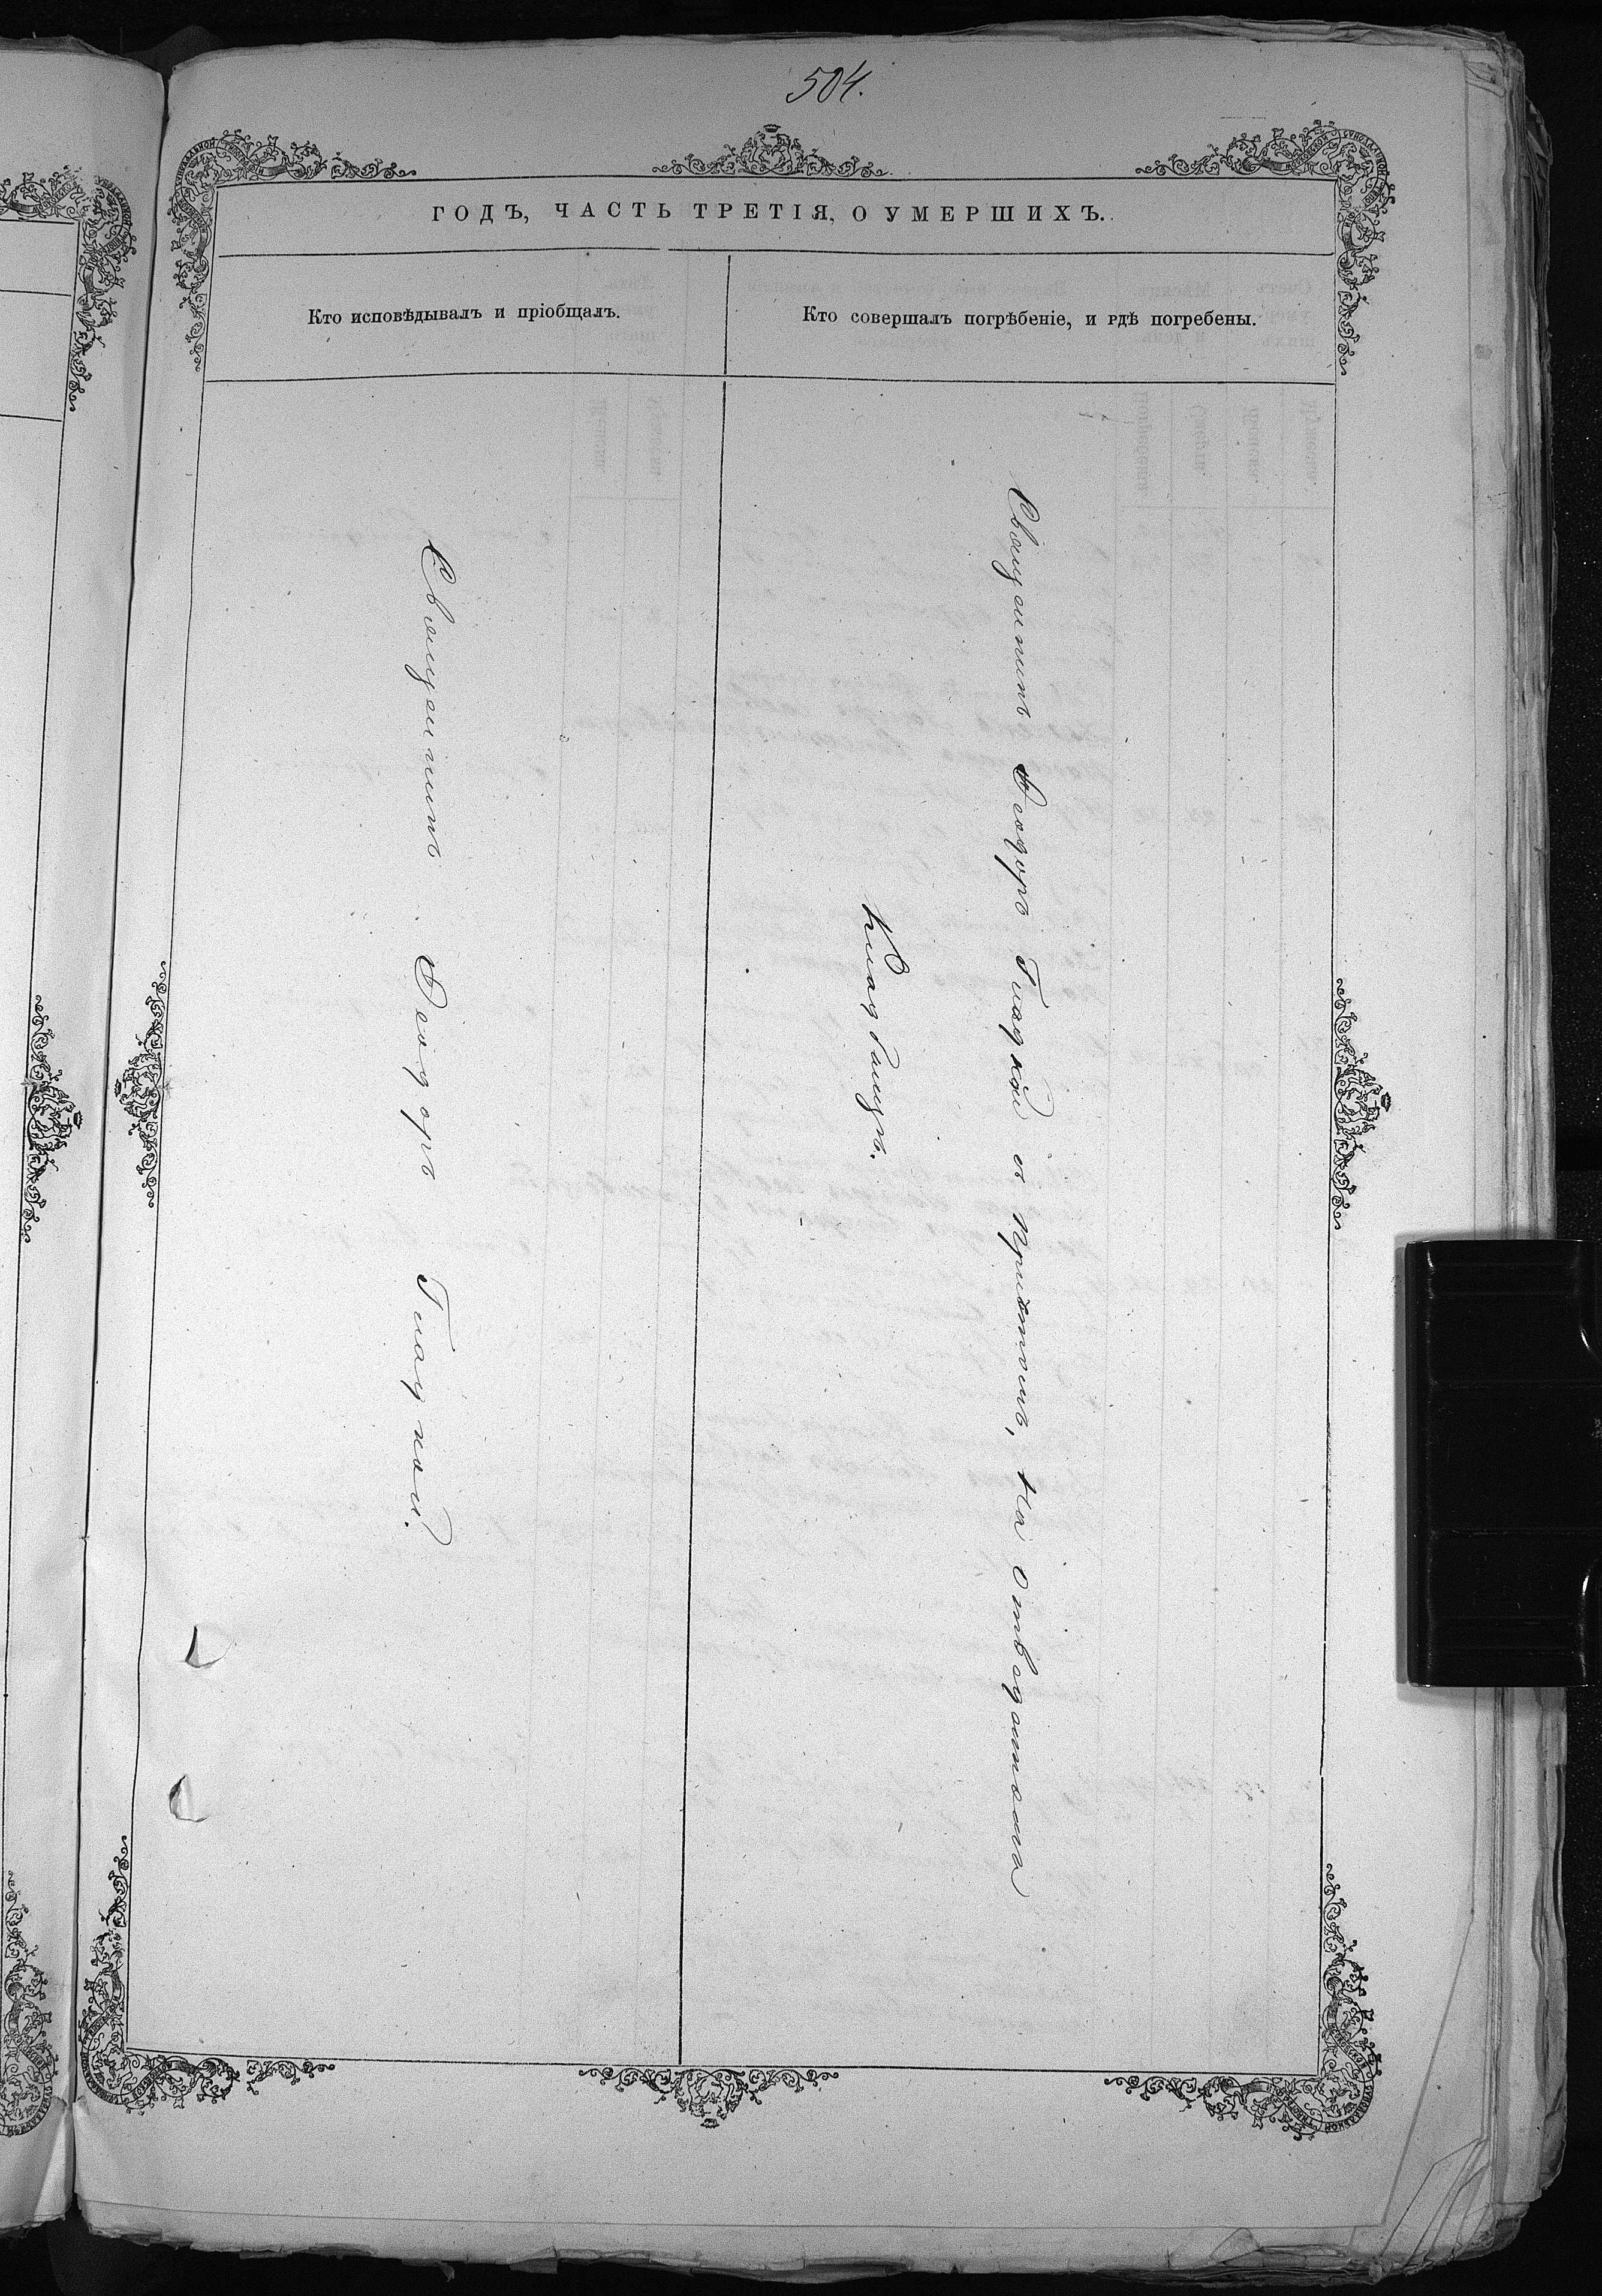 504.
ГОДЪ, ЧАСТЬ ТРЕТІЯ, О УМЕРШИХЪ.
Кто исповѣдывалъ и пріобщалъ.
Кто совершалъ погрѣбеніе, и гдѣ погребены.
Священникъ Ѳеодоръ Гладкой.
Священникъ Ѳеодоръ Гладкой съ Причтомъ, на Отведенномъ
Кладбищѣ.